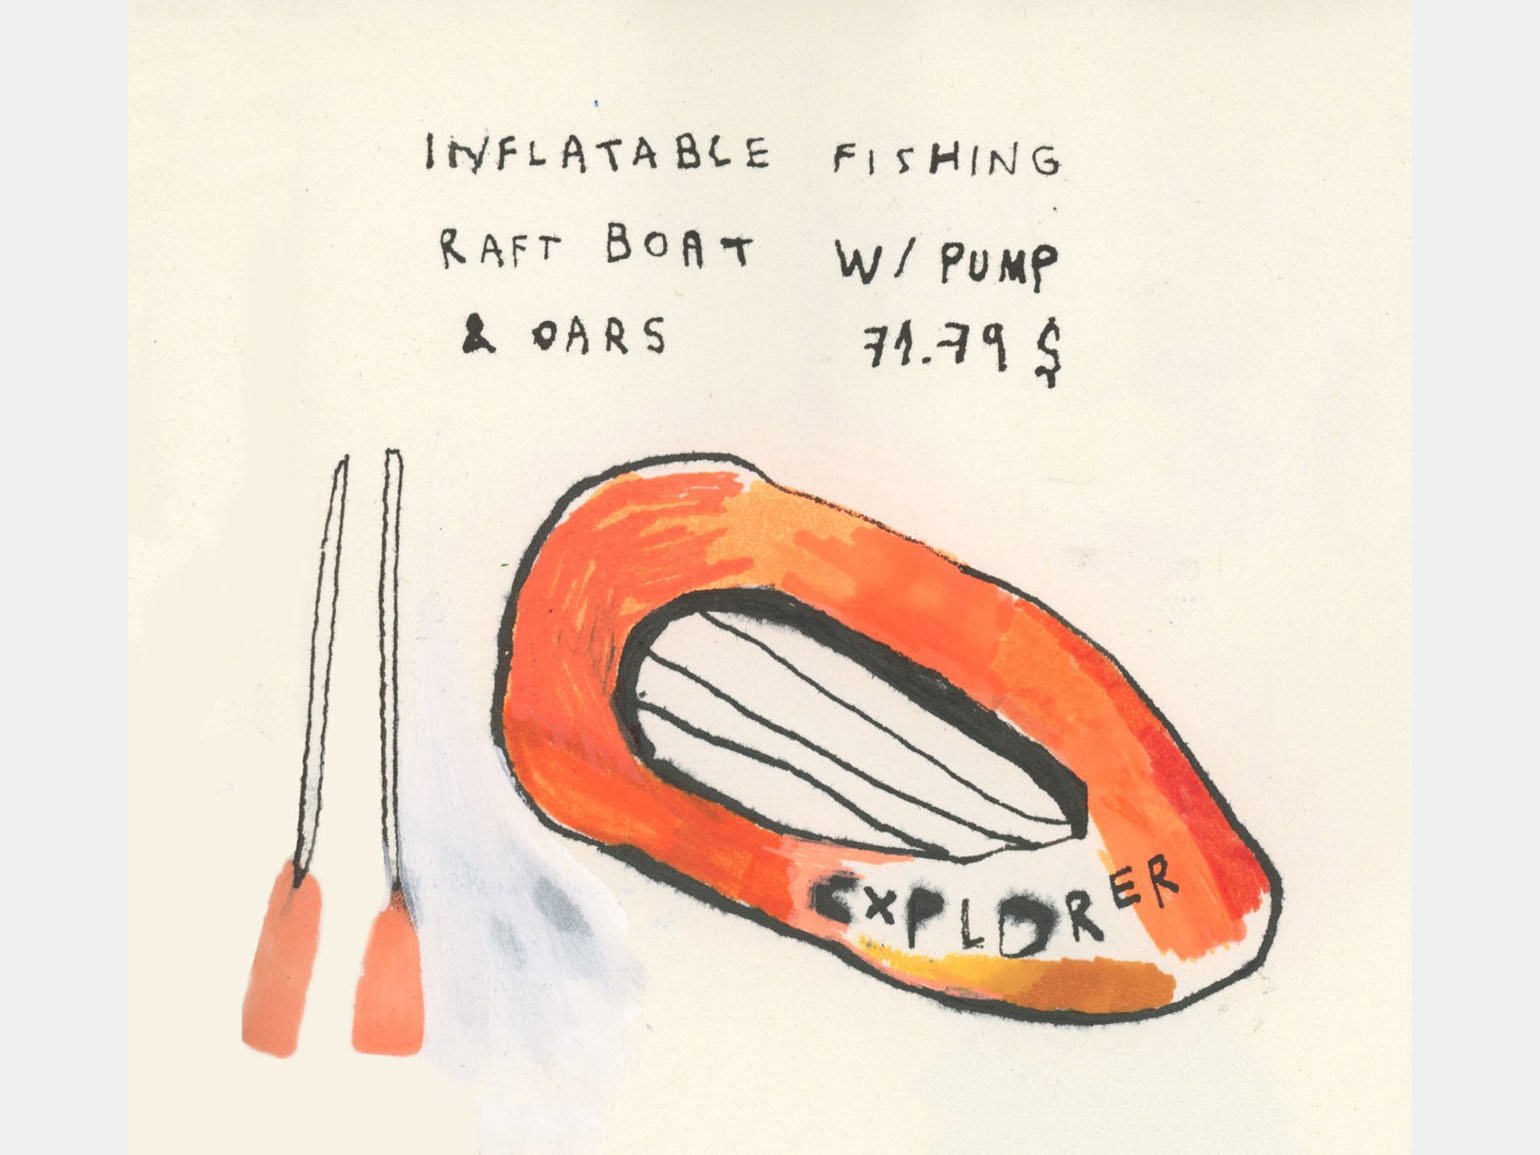 INFLATABLE FISHING
RAFT BOAT W/ PUMP
& OARS 71.79 $
EXPLORER